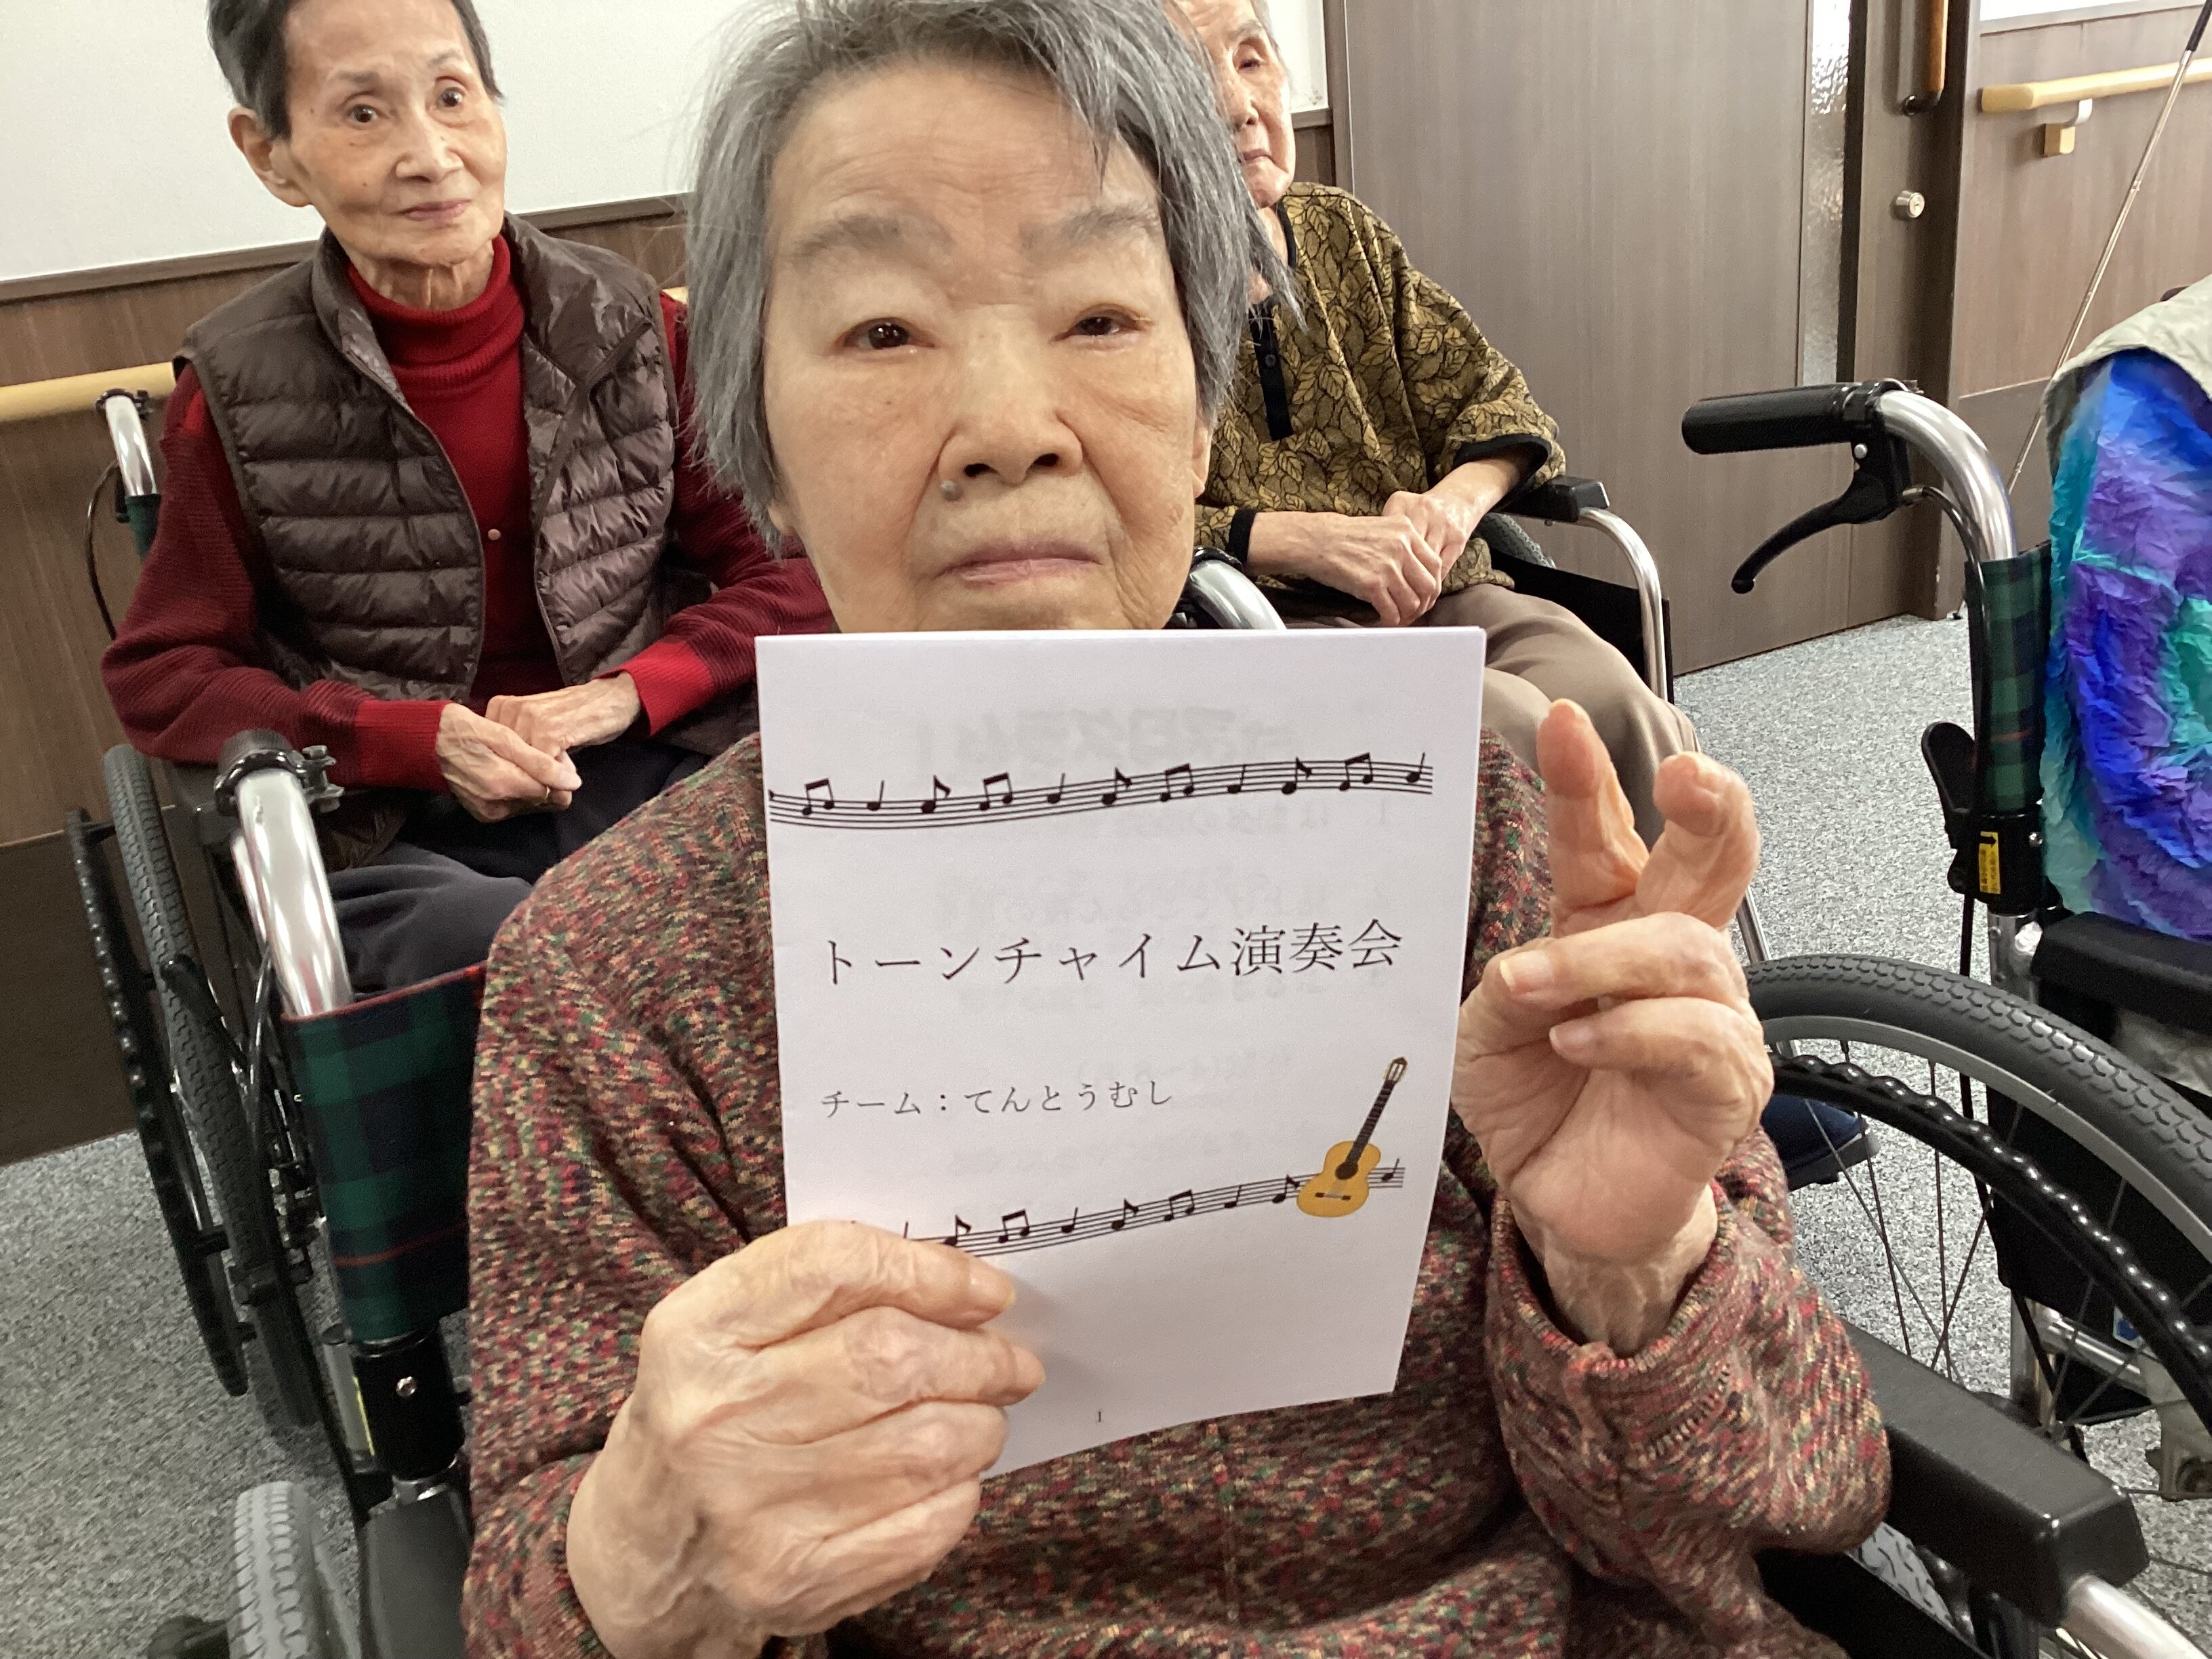 トーンチャイム演奏会
チーム：てんとうむし
1